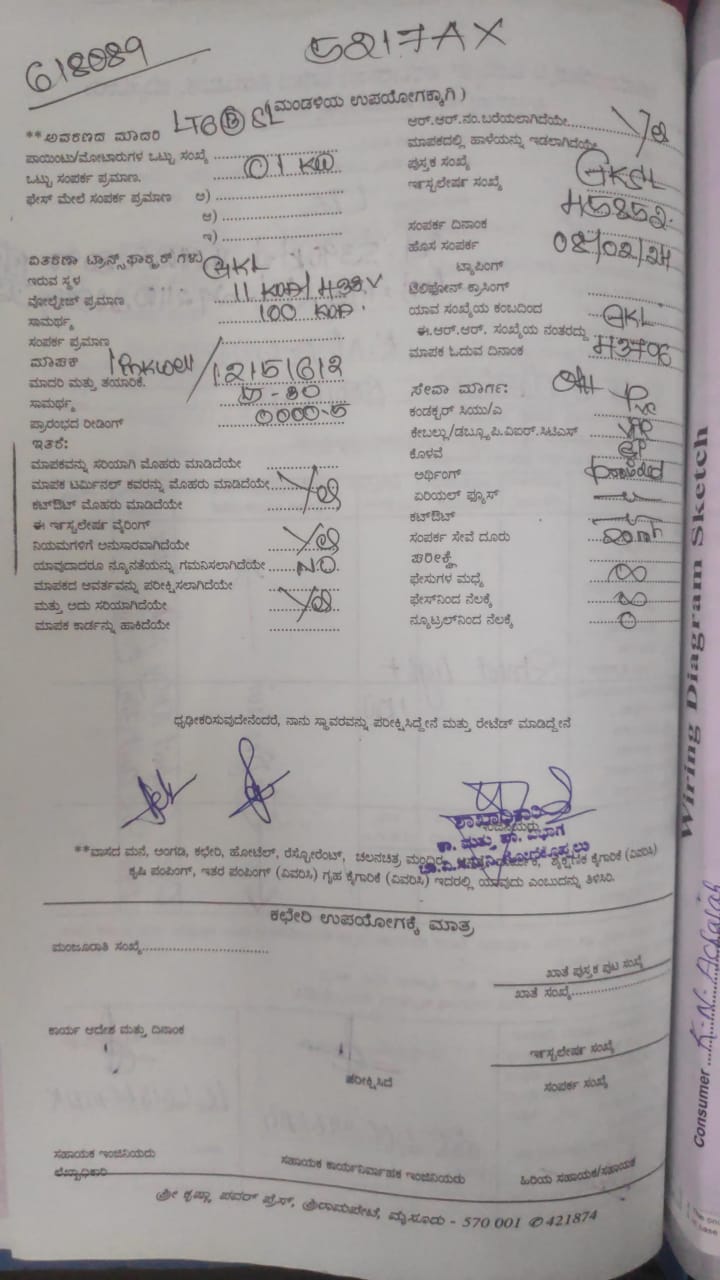 618089
5217AX
(ಮಂಡಳಿಯ ಉಪಯೋಗಕ್ಕಾಗಿ)
**ಅವಕರಣದ ಮಾದರಿ
ಪಾಯಿಂಟು/ಮೋಟಾರುಗಳ ಒಟ್ಟು ಸಂಖ್ಯೆ
ಒಟ್ಟು ಸಂಪರ್ಕ ಪ್ರಮಾಣ. 01 KW
ಫೇಸ್ ಮೇಲೆ ಸಂಪರ್ಕ ಪ್ರಮಾಣ ಅ)
ಆ)
ಇ)
ವಿತರಣಾ ಟ್ರಾನ್ಸ್‌ಫಾರ್ಮರ್ ಗಳು GKL
ಇರುವ ಸ್ಥಳ
ವೋಲ್ಟೇಜ್ ಪ್ರಮಾಣ
ಸಾಮರ್ಥ್ಯ 100
ಸಂಪರ್ಕ ಪ್ರಮಾಣ
ಮಾಪಕ 12151612
ಮಾದರಿ ಮತ್ತು ತಯಾರಿಕೆ.
ಸಾಮರ್ಥ್ಯ 5-30
ಪ್ರಾರಂಭದ ರೀಡಿಂಗ್ 0000-5
ಇತರೆ:
ಮಾಪಕವನ್ನು ಸರಿಯಾಗಿ ಮೊಹರು ಮಾಡಿದೆಯೇ
ಮಾಪಕ ಟರ್ಮಿನಲ್ ಕವರನ್ನು ಮೊಹರು ಮಾಡಿದೆಯೇ Yes
ಕಟ್‌ಔಟ್ ಮೊಹರು ಮಾಡಿದೆಯೇ
ಈ ಇನ್ಸ್ಟಲೇಷನ್ ವೈರಿಂಗ್
ನಿಯಮಗಳಿಗೆ ಅನುಸಾರವಾಗಿದೆಯೇ Yes
ಯಾವುದಾದರೂ ನ್ಯೂನತೆಯನ್ನು ಗಮನಿಸಲಾಗಿದೆಯೇ NO
ಮಾಪಕದ ಆವರ್ತವನ್ನು ಪರೀಕ್ಷಿಸಲಾಗಿದೆಯೇ
ಮತ್ತು ಅದು ಸರಿಯಾಗಿದೆಯೇ Yes
ಮಾಪಕ ಕಾರ್ಡನ್ನು ಹಾಕಿದೆಯೇ
ಆರ್.ಆರ್.ನಂ.ಬರೆಯಲಾಗಿದೆಯೇ Yes
ಮಾಪಕದಲ್ಲಿ ಹಾಳೆಯನ್ನು ಇಡಲಾಗಿದೆಯೇ
ಪುಸ್ತಕ ಸಂಖ್ಯೆ
ಇನ್ಸ್ಟಲೇಷನ್ ಸಂಖ್ಯೆ
45852
ಸಂಪರ್ಕ ದಿನಾಂಕ 08/02/24
ಹೊಸ ಸಂಪರ್ಕ
ಟ್ಯಾಪಿಂಗ್
ಟೆಲಿಫೋನ್ ಕ್ರಾಸಿಂಗ್
ಯಾವ ಸಂಖ್ಯೆಯ ಕಂಬದಿಂದ GKL
ಈ.ಆರ್.ಆರ್. ಸಂಖ್ಯೆಯ ನಂತರದ್ದು
ಮಾಪಕ ಓದುವ ದಿನಾಂಕ 43706
ಸೇವಾ ಮಾರ್ಗ: OH
ಕಂಡಕ್ಟರ್ ಸಿಯು/ಎ
ಕೇಬಲ್ಲು/ಡಬ್ಲ್ಯೂ.ಪಿ.ವಿಐರ್.ಸಿಟಿಎಸ್
ಕೊಳವೆ GP
ಅರ್ಥಿಂಗ್ provided
ಏರಿಯಲ್ ಫ್ಯೂಸ್
ಕಟ್‌ಔಟ್
ಸಂಪರ್ಕ ಸೇವೆ ದೂರು
ಪರೀಕ್ಷೆ
ಫೇಸುಗಳ ಮಧ್ಯೆ ∞
ಫೇಸ್‌ನಿಂದ ನೆಲಕ್ಕೆ ∞
ನ್ಯೂಟ್ರಲ್‌ನಿಂದ ನೆಲಕ್ಕೆ 0
ಧೃಢೀಕರಿಸುವುದೇನೆಂದರೆ, ನಾನು ಸ್ಥಾವರವನ್ನು ಪರೀಕ್ಷಿಸಿದ್ದೇನೆ ಮತ್ತು ರೇಟೆಡ್ ಮಾಡಿದ್ದೇನೆ
ಶಾಖಾಧಿಕಾರಿ
ಕಾ. ಮತ್ತು ಪಾ. ವಿಭಾಗ
**ವಾಸದ ಮನೆ, ಅಂಗಡಿ, ಕಛೇರಿ, ಹೋಟೆಲ್, ರೆಸ್ಟೋರೆಂಟ್, ಚಲನಚಿತ್ರ ಮಂದಿರ, ಕೈಗಾರಿಕೆ (ವಿವರಿಸಿ)
ಕೃಷಿ ಪಂಪಿಂಗ್, ಇತರ ಪಂಪಿಂಗ್ (ವಿವರಿಸಿ) ಗೃಹ ಕೈಗಾರಿಕೆ (ವಿವರಿಸಿ) ಇದರಲ್ಲಿ ಯಾವುದು ಎಂಬುದನ್ನು ತಿಳಿಸಿರಿ.
ಕಛೇರಿ ಉಪಯೋಗಕ್ಕೆ ಮಾತ್ರ
ಮಂಜೂರಾತಿ ಸಂಖ್ಯೆ
ಖಾತೆ ಪುಸ್ತಕ ಪುಟ ಸಂಖ್ಯೆ
ಖಾತೆ ಸಂಖ್ಯೆ
ಕಾರ್ಯ ಆದೇಶ ಮತ್ತು ದಿನಾಂಕ
ಇನ್ಸ್ಟಲೇಷನ್ ಸಂಖ್ಯೆ
ಪರೀಕ್ಷಿಸಿದೆ
ಸಂಪರ್ಕ ಸಂಖ್ಯೆ
ಸಹಾಯಕ ಇಂಜಿನಿಯರು
ಲೆಖ್ಖಾಧಿಕಾರಿ
ಸಹಾಯಕ ಕಾರ್ಯನಿರ್ವಾಹಕ ಇಂಜಿನಿಯರು
ಹಿರಿಯ ಸಹಾಯಕ/ಸಹಾಯಕ
ಶ್ರೀ ಕೃಷ್ಣಾ ಪವರ್ ಪ್ರೆಸ್, ಶ್ರೀರಾಮಪೇಟೆ, ಮೈಸೂರು - 570 001 ✆ 421874
Wiring Diagram Sketch
Consumer K.N. Achalah